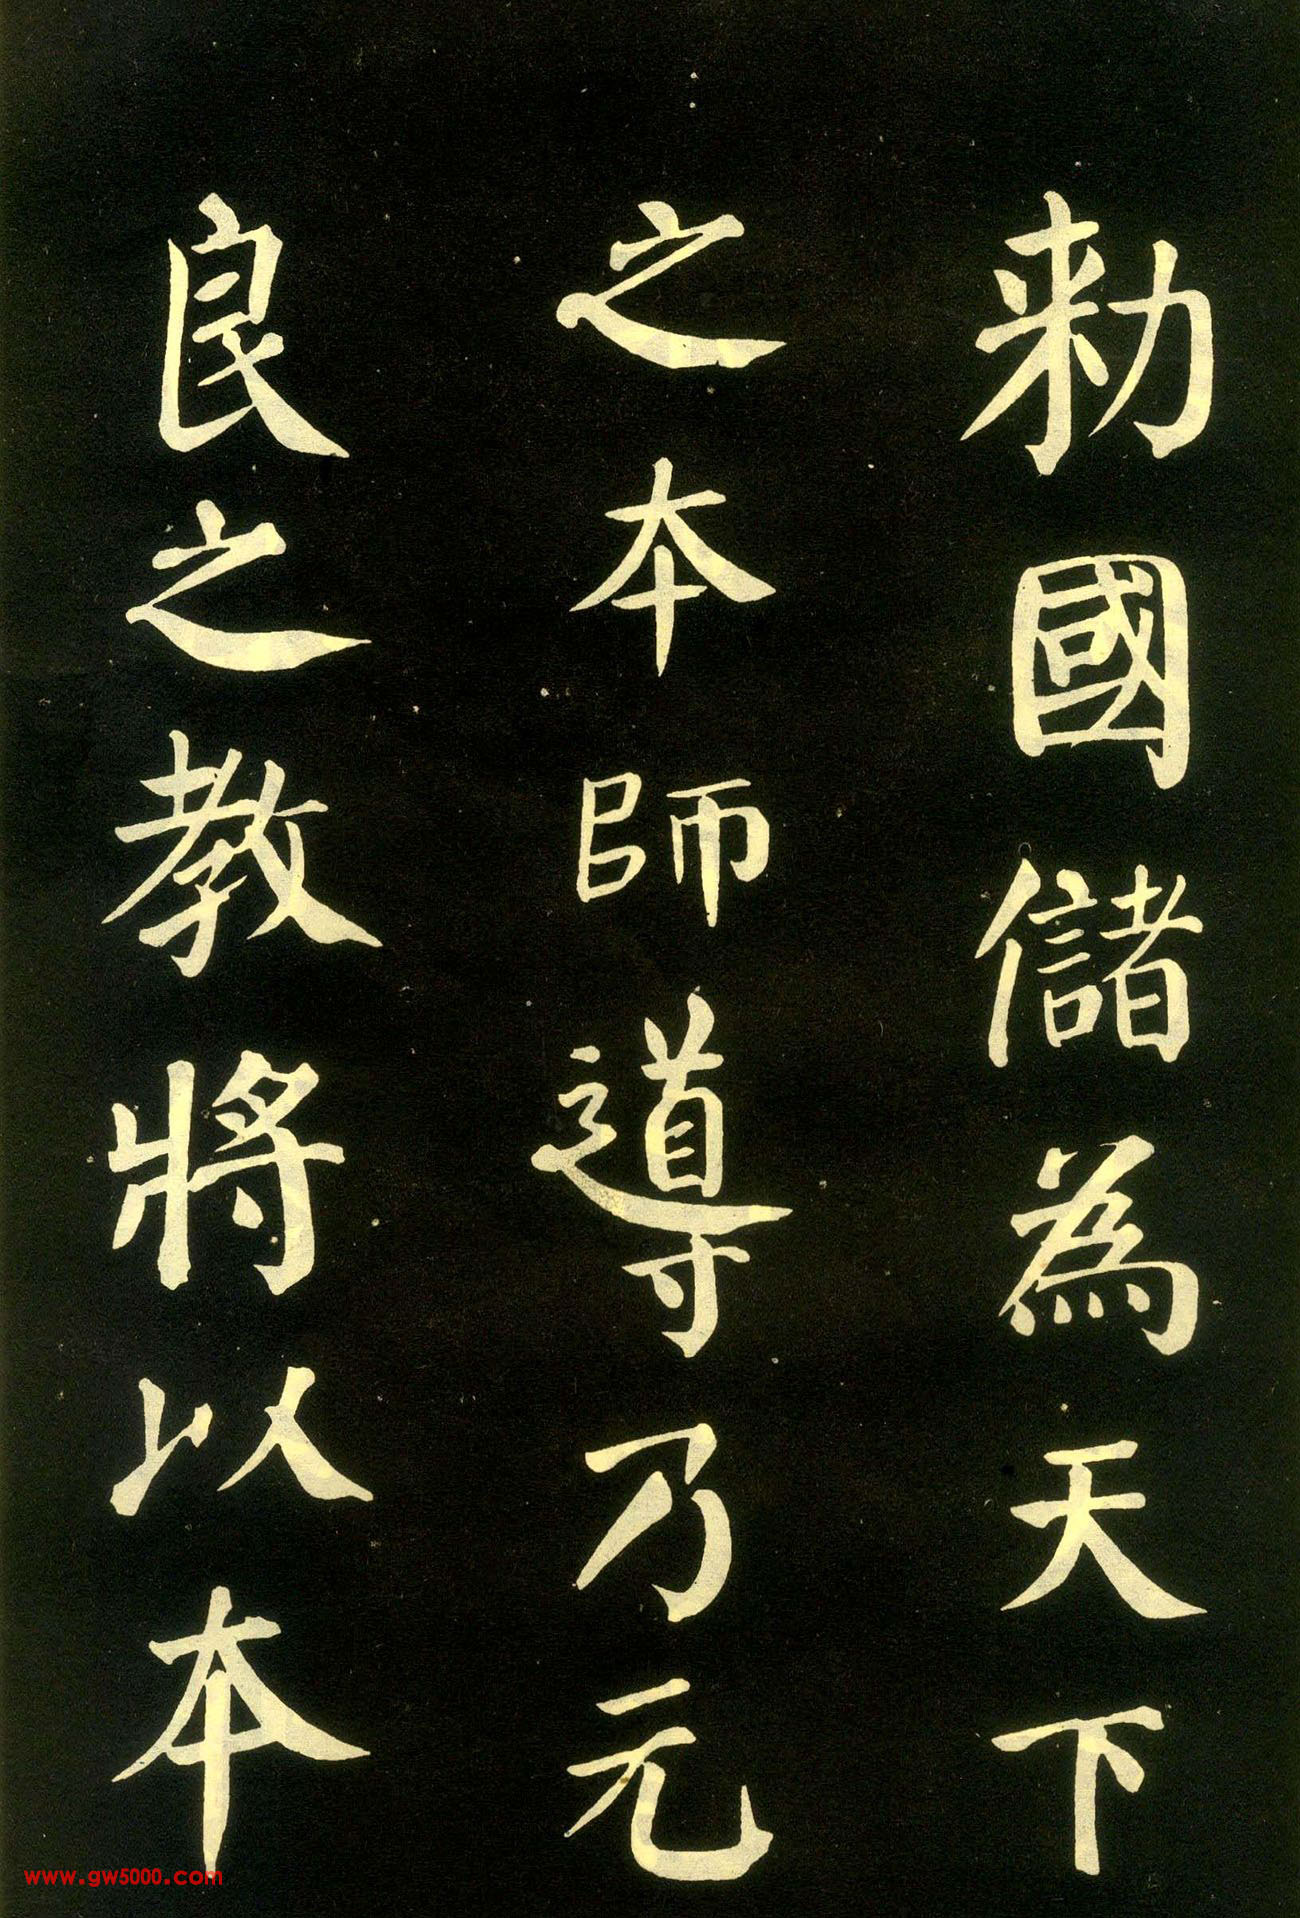 勑國儲為天下
之本師導乃元
良之教將以本
www.gw5000.com